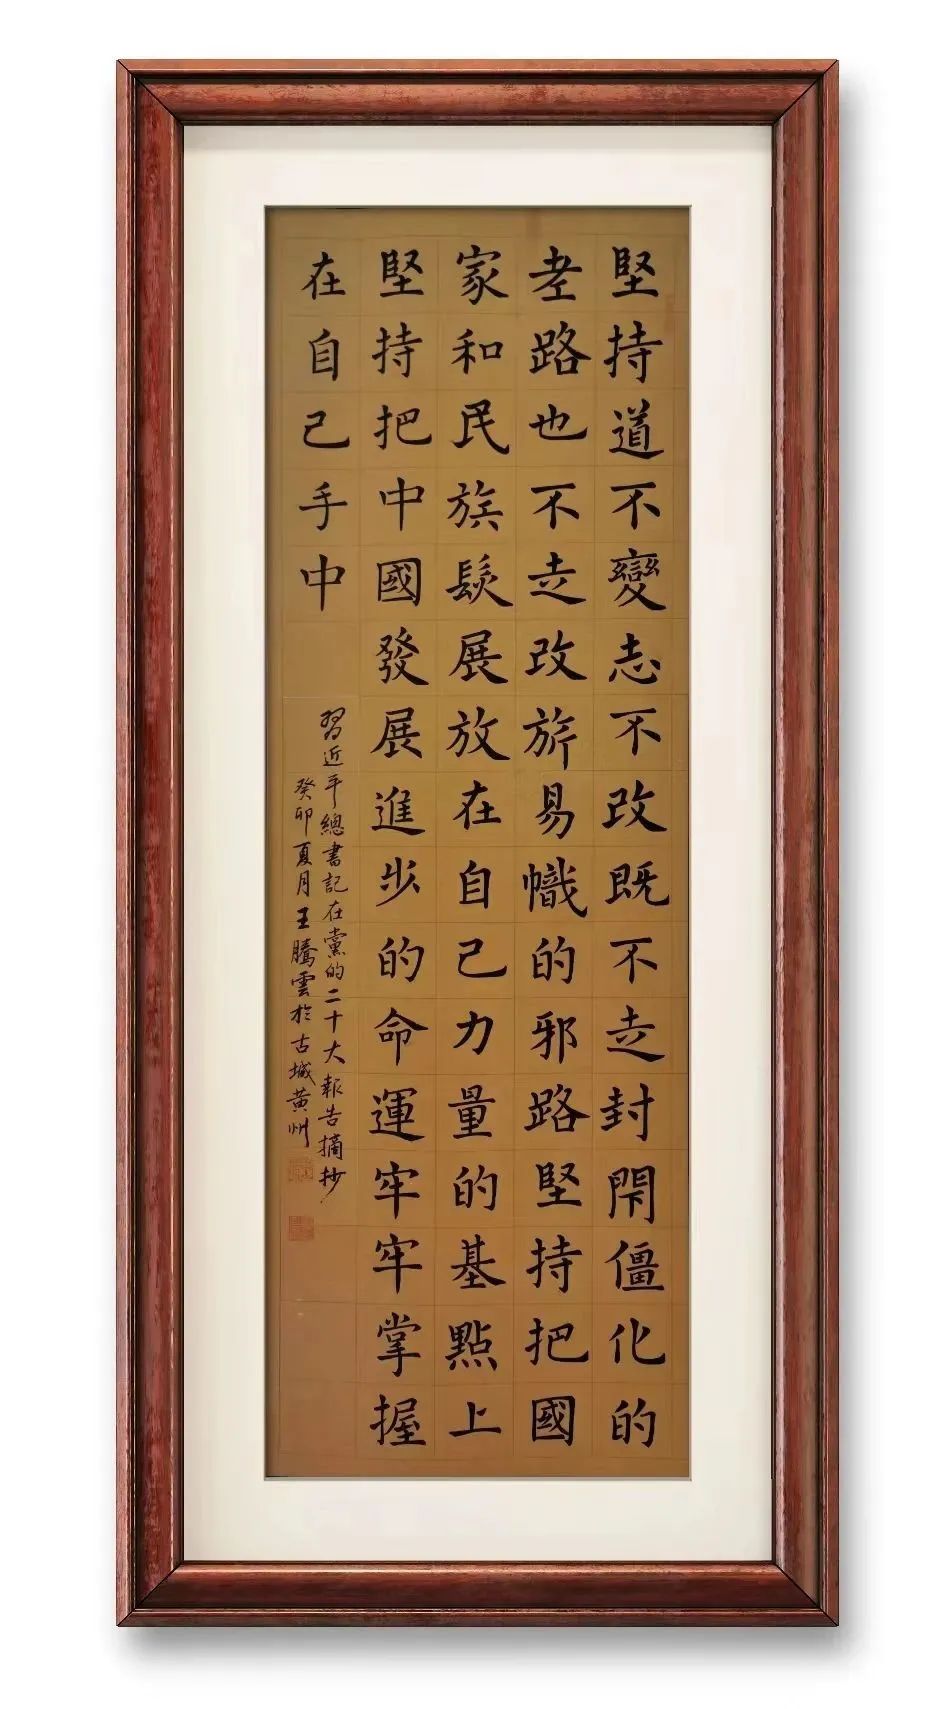 堅持道不變志不改既不走封閇僵化的
老路也不走改旂易幟的邪路堅持把國
家和民族髮展放在自己力量的基點上
堅持把中國發展進步的命運牢牢掌握
在自己手中
習近平總書記在黨的二十大報告摘抄
癸卯夏月王騰雲於古城黃州